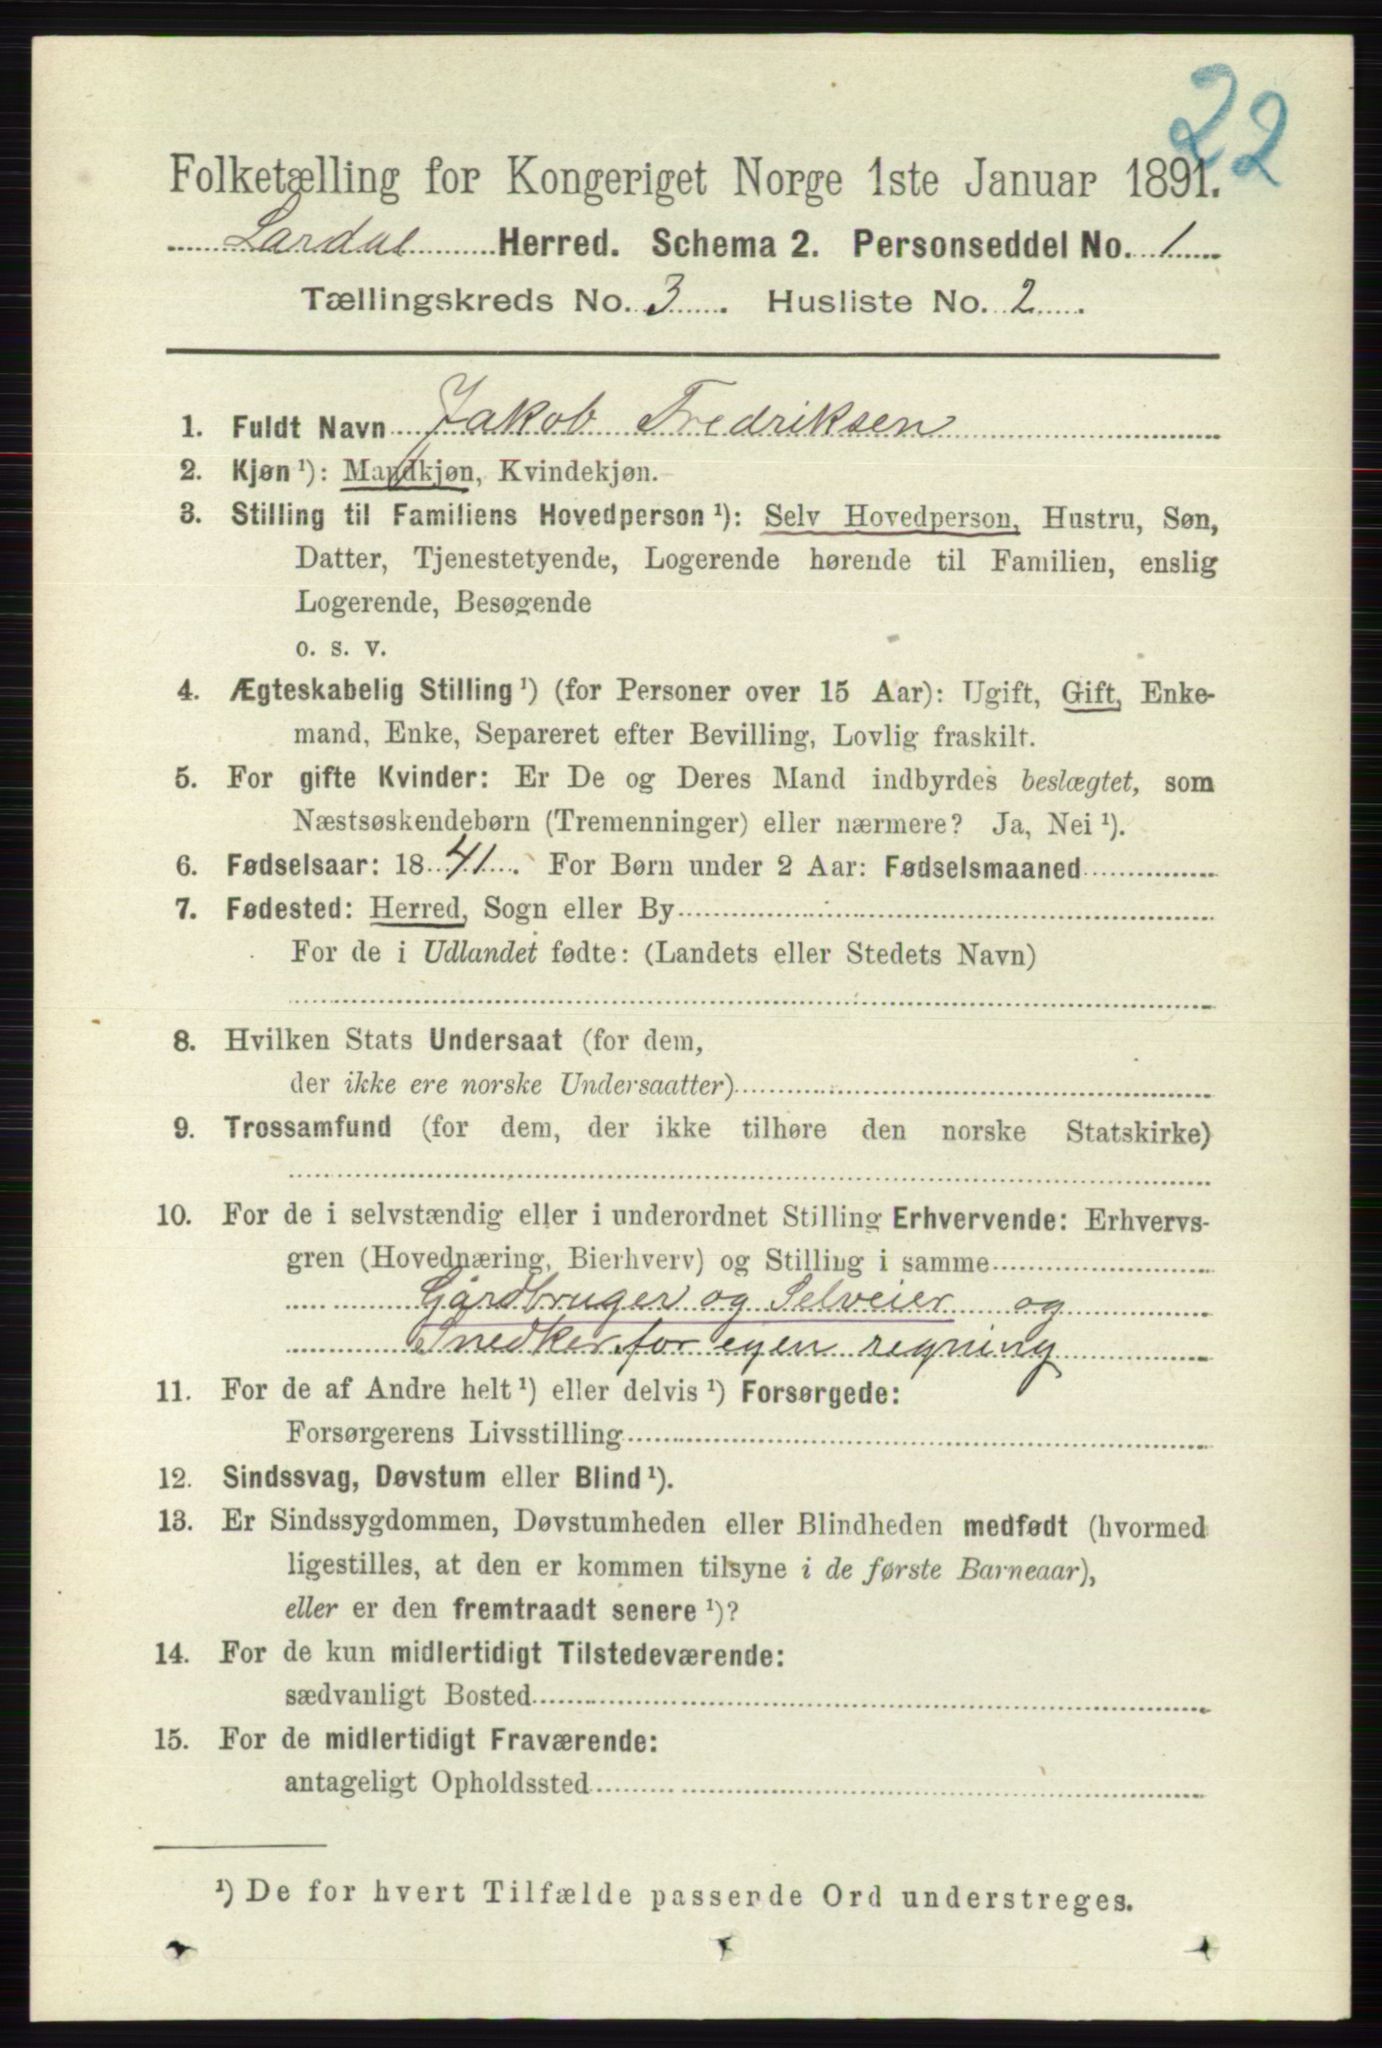 22
Folketælling for Kongeriget Norge 1ste Januar 1891.
Lardal Herred. Schema 2. Personseddel No. 1
Tællingskreds No. 3. Husliste No. 2.
1. Fuldt Navn Jakob Fredriksen
2. Kjøn¹): Mandkjøn, Kvindekjøn.
3. Stilling til Familiens Hovedperson¹): Selv Hovedperson, Hustru, Søn,
Datter, Tjenestetyende, Logerende hørende til Familien, enslig
Logerende, Besøgende
o. s. v.
4. Ægteskabelig Stilling¹) (for Personer over 15 Aar): Ugift, Gift, Enke-
mand, Enke, Separeret efter Bevilling, Lovlig fraskilt.
5. For gifte Kvinder: Er De og Deres Mand indbyrdes beslægtet, som
Næstsøskendebørn (Tremenninger) eller nærmere? Ja, Nei¹).
6. Fødselsaar: 1841. For Børn under 2 Aar: Fødselsmaaned
7. Fødested: Herred, Sogn eller By
For de i Udlandet fødte: (Landets eller Stedets Navn)
8. Hvilken Stats Undersaat (for dem,
der ikke ere norske Undersaatter)
9. Trossamfund (for dem, der ikke tilhøre den norske Statskirke)
10. For de i selvstændig eller i underordnet Stilling Erhvervende: Erhvervs-
gren (Hovednæring, Bierhverv) og Stilling i samme
Gårdbruger og Selveier og
Snedker for egen regning
11. For de af Andre helt¹) eller delvis¹) Forsørgede:
Forsørgerens Livsstilling
12. Sindssvag, Døvstum eller Blind¹).
13. Er Sindssygdommen, Døvstumheden eller Blindheden medfødt (hvormed
ligestilles, at den er kommen tilsyne i de første Barneaar),
eller er den fremtraadt senere¹)?
14. For de kun midlertidigt Tilstedeværende:
sædvanligt Bosted
15. For de midlertidigt Fraværende:
antageligt Opholdssted
¹) De for hvert Tilfælde passende Ord understreges.